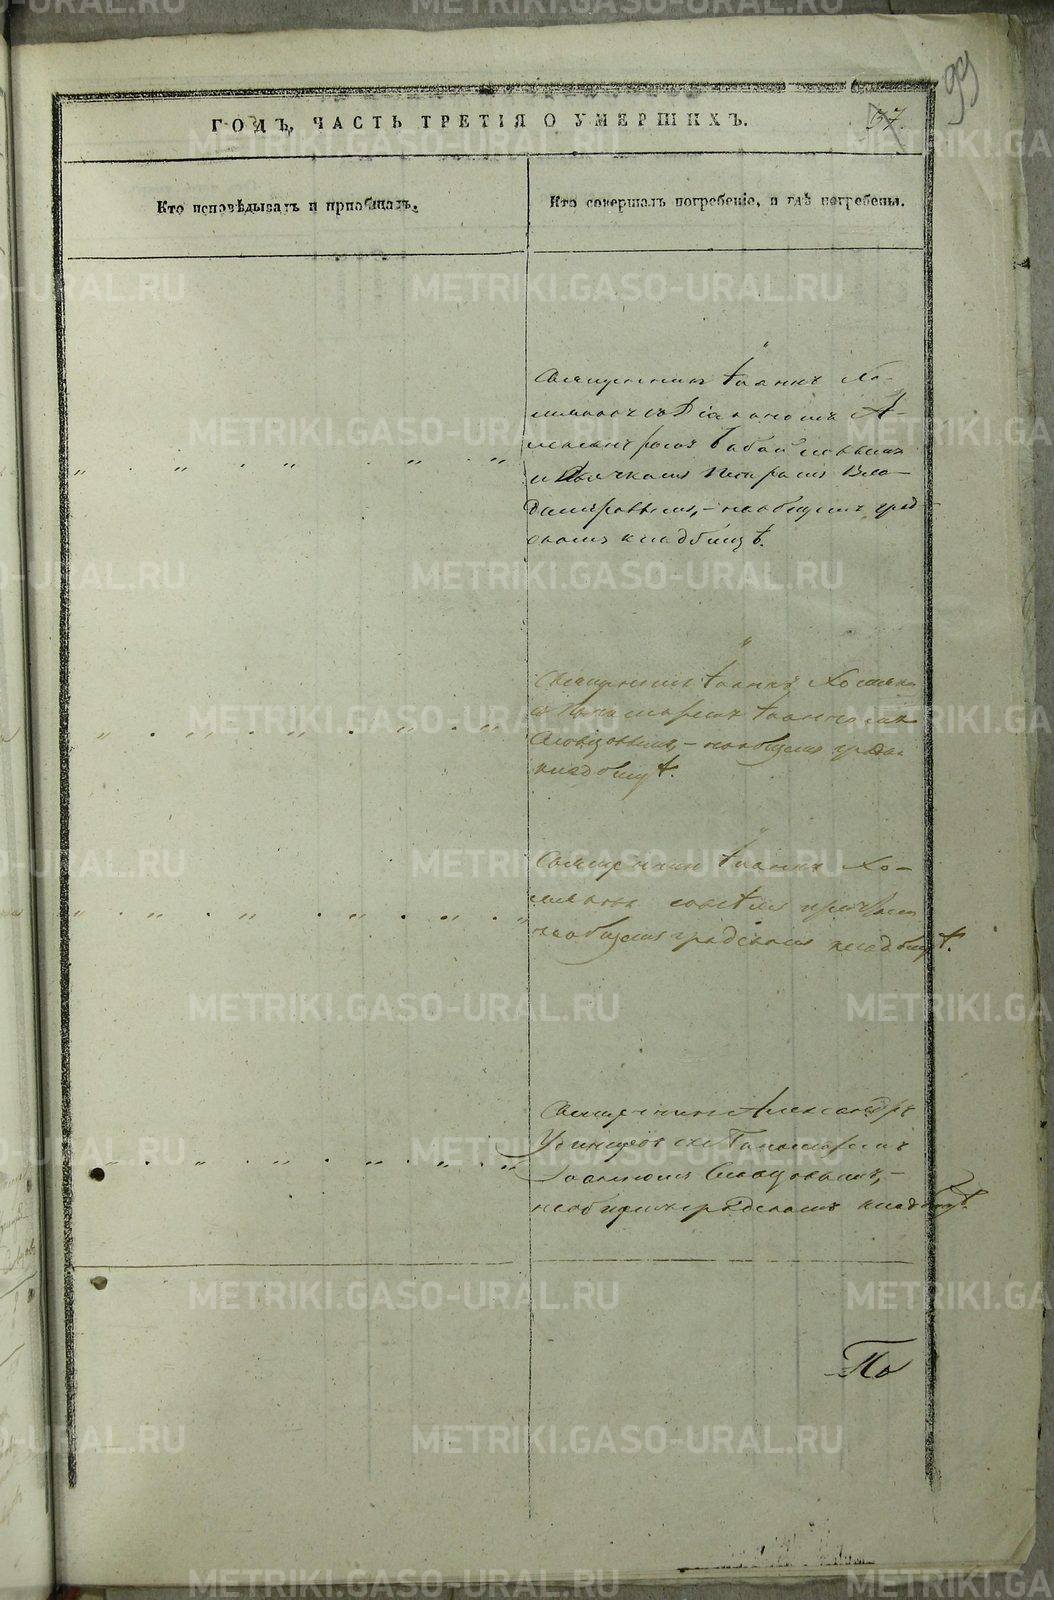 99
ГОДЪ, ЧАСТЬ ТРЕТІЯ О УМЕРШИХЪ.
37.
Кто исповѣдывалъ и пріобщалъ.
Кто совершалъ погребеніе, и гдѣ погребены.
Священникъ Іоаннъ Хо-
мяковъ съ Діакономъ А-
лександромъ
и Дьячкомъ Петромъ Вла-
диміровымъ, - на общемъ град
скомъ кладбищѣ.
Священникъ Іоаннъ Хомяковъ
съ Пономаремъ Іоанномъ
Словцовымъ, - на общемъ градск.
кладбищѣ.
Священникъ Іоаннъ Хо-
мяковъ со всѣмъ причтомъ
на общемъ градскомъ кладбищѣ.
Священникъ Александръ
съ Пономаремъ
Іоанномъ Словцовымъ, -
на общемъ градскомъ кладбищѣ.
По
METRIKI.GASO-URAL.RU